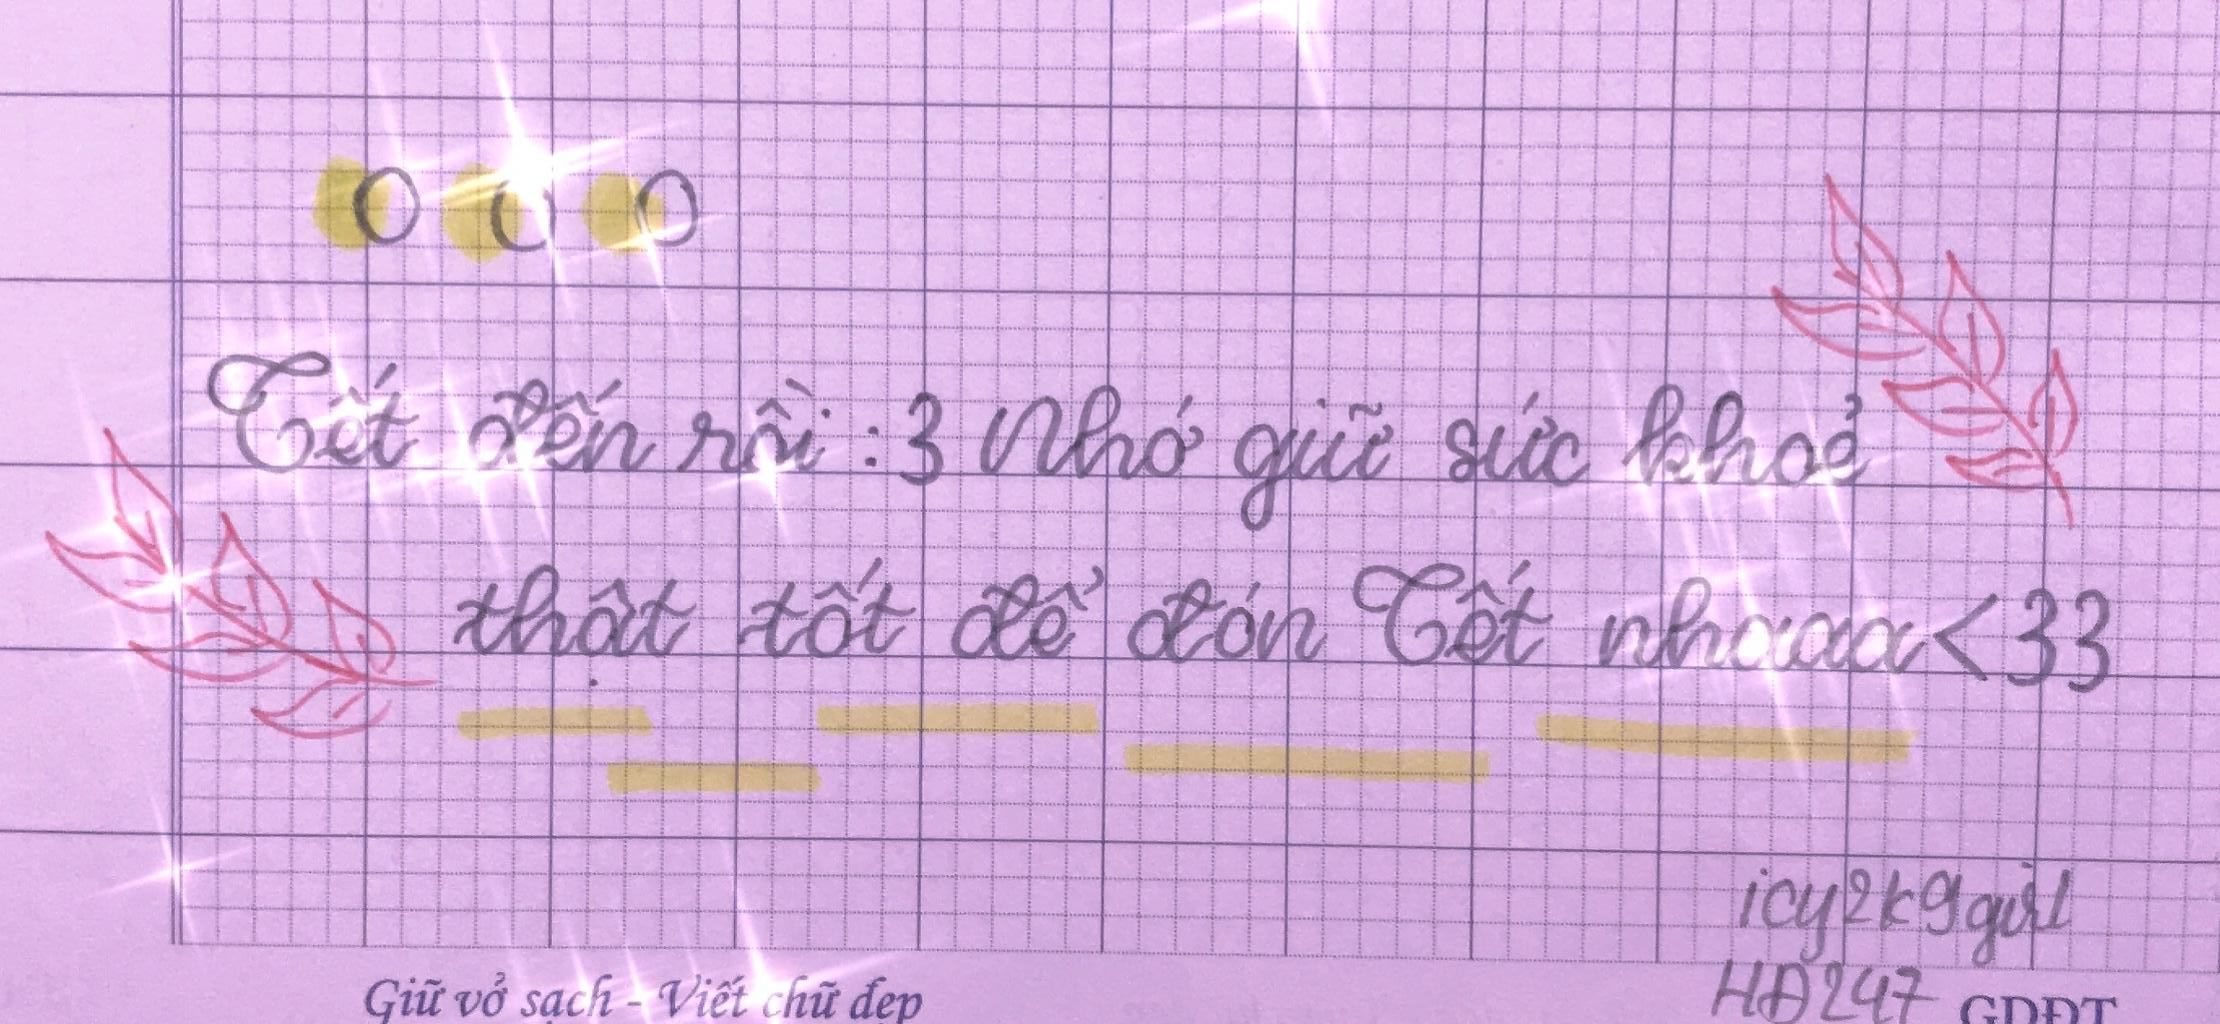 Tết đến rồi :3 Nhớ giữ sức khoẻ
thật tốt để đón Tết nhaaa<33
icy2k9girl
HĐ247
Giữ vở sạch - Viết chữ đẹp
GDĐT